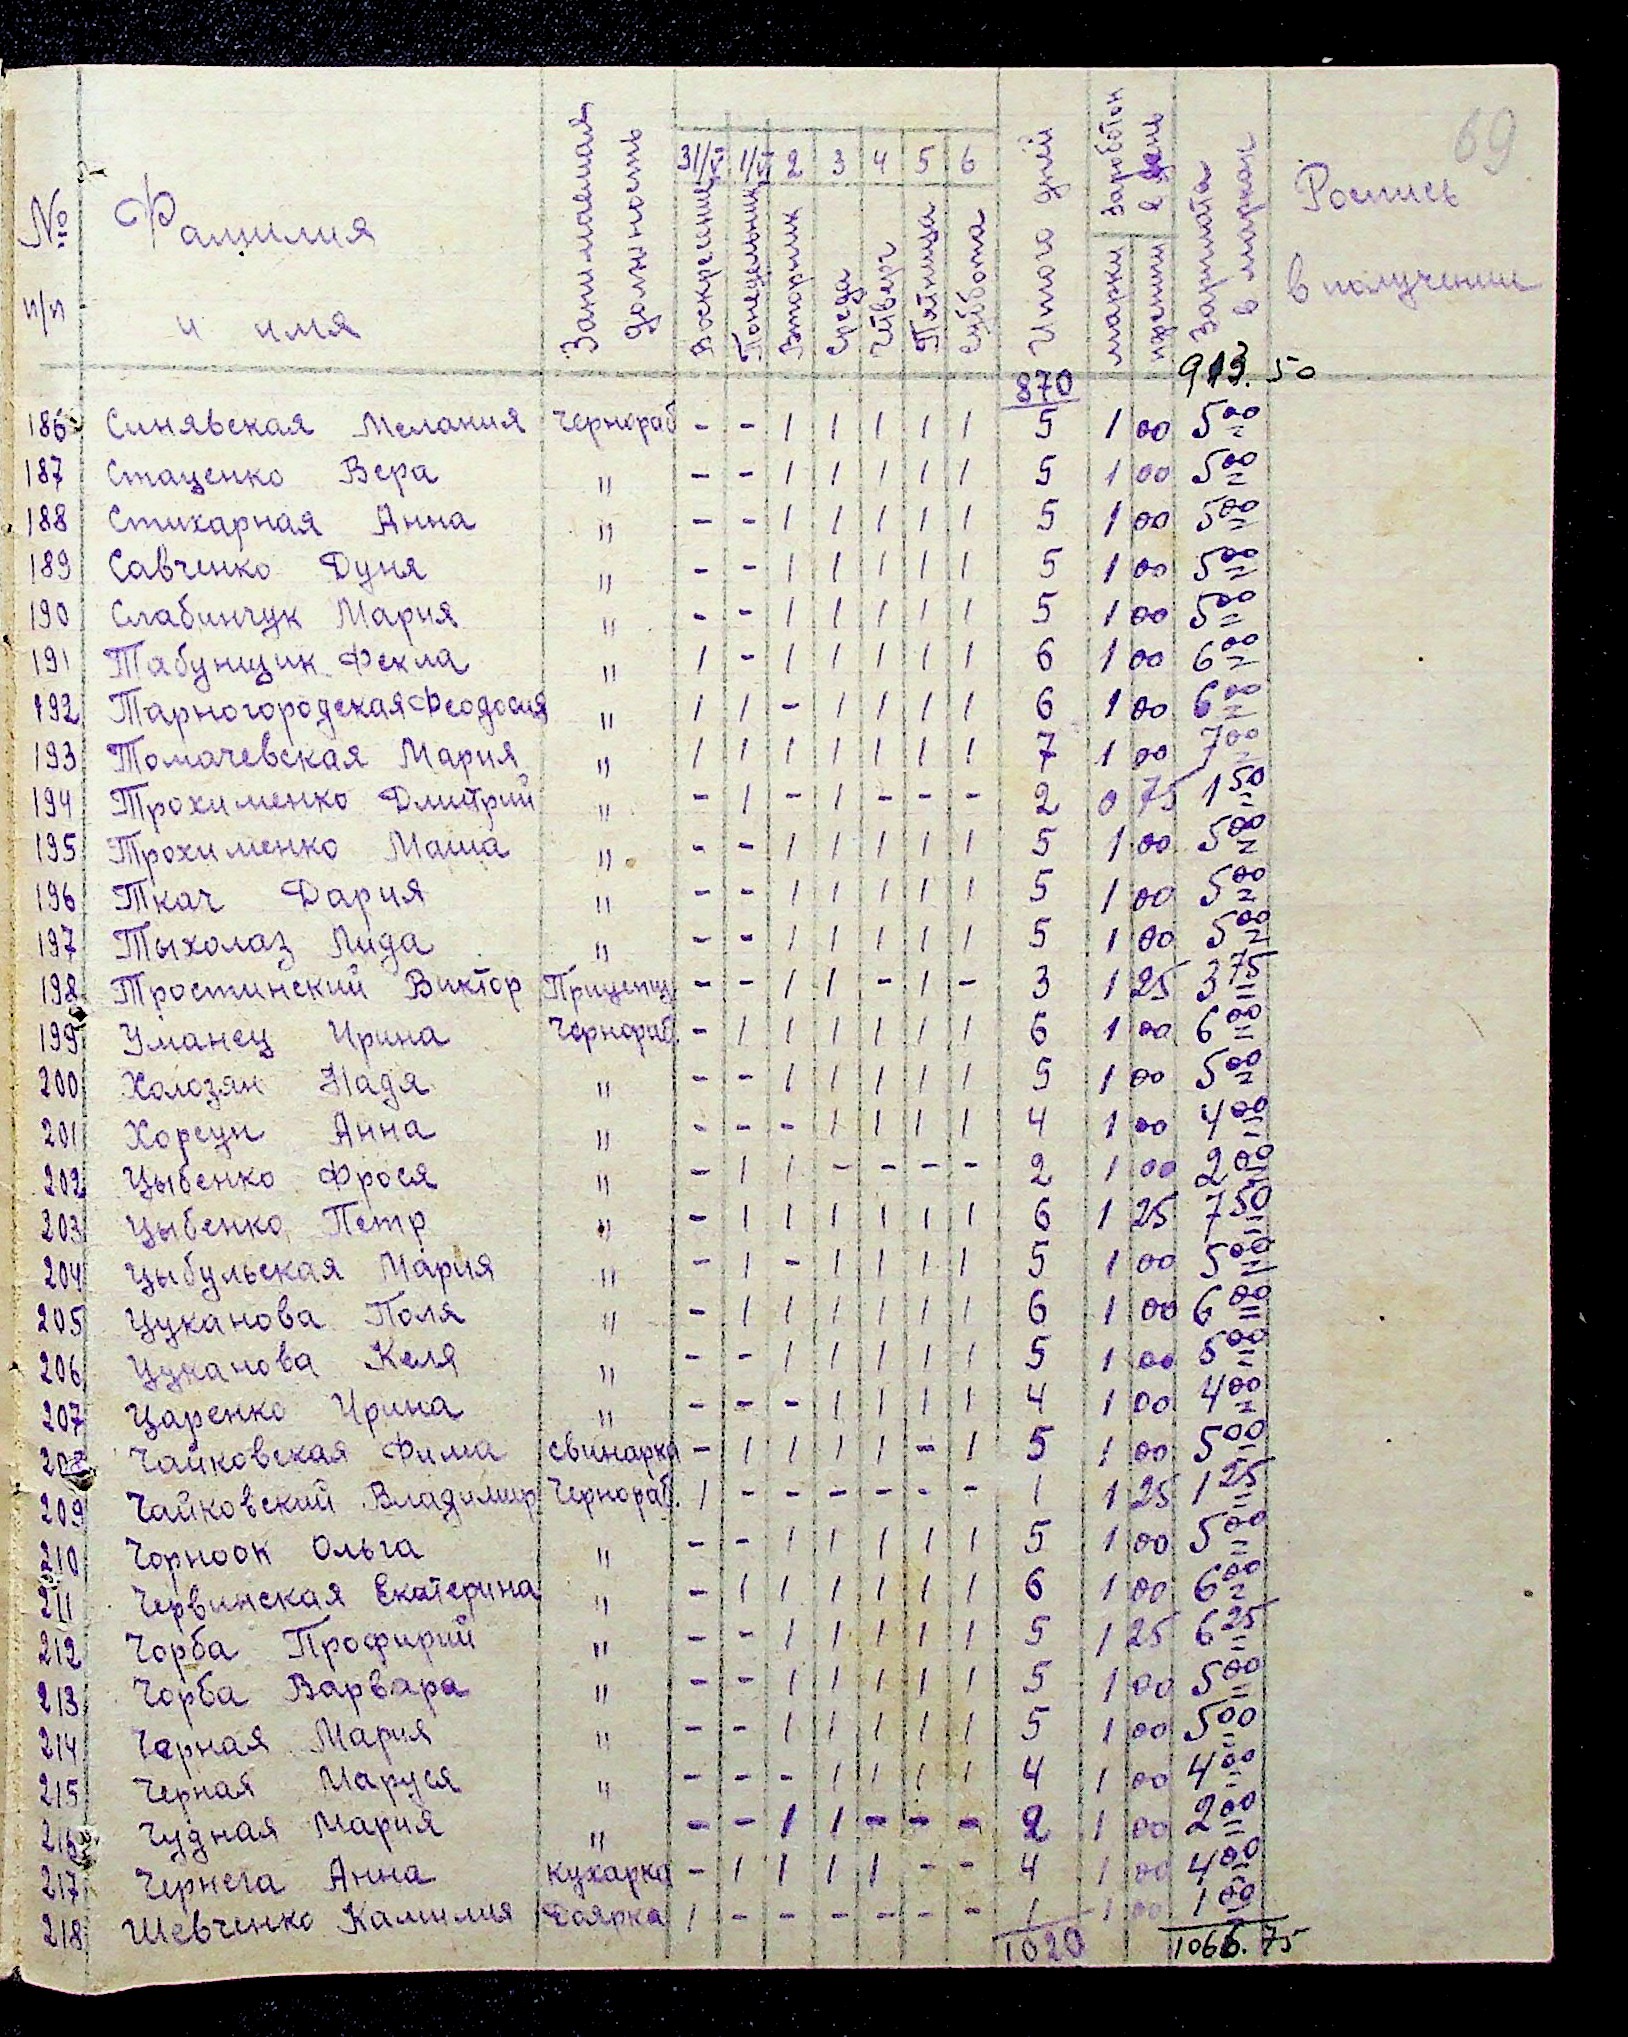 69
№ п/п Фамилия и имя Занимаемая должность 31/V Воскресение 1/VI Понедельник 2 Вторник 3 Среда 4 Четверг 5 Пятница 6 Субота Итого дней Заработок в день марки пфенинг Зарплата в марках Роспись в получении
870 913.50
186 Синявская Мелания Чернораб - - 1 1 1 1 1 5 1 00 5 00
187 Стаценко Вера " - - 1 1 1 1 1 5 1 00 5 00
188 Стихарная Анна " - - 1 1 1 1 1 5 1 00 5 00
189 Савченко Дуня " - - 1 1 1 1 1 5 1 00 5 00
190 Слабинчук Мария " - - 1 1 1 1 1 5 1 00 5 00
191 Табунщик Фекла " 1 - 1 1 1 1 1 6 1 00 6 00
192 Тарногородская Феодосия " 1 1 - 1 1 1 1 6 1 00 6 00
193 Томачевская Мария " 1 1 1 1 1 1 1 7 1 00 7 00
194 Трохименко Дмитрий " - 1 - 1 - - - 2 0 75 1 50
195 Трохименко Маша " - - 1 1 1 1 1 5 1 00 5 00
196 Ткач Дария " - - 1 1 1 1 1 5 1 00 5 00
197 Тыхолаз Лида " - - 1 1 1 1 1 5 1 00 5 00
198 Тростинский Виктор Прицепщ - - 1 1 - 1 - 3 1 25 3 75
199 Уманец Ирина Чернораб. - 1 1 1 1 1 1 6 1 00 6 00
200 Холозян Надя " - - 1 1 1 1 1 5 1 00 5 00
201 Хорсун Анна " - - - 1 1 1 1 4 1 00 4 00
202 Цыбенко Фрося " - 1 1 - - - - 2 1 00 2 00
203 Цыбенко Петр " - 1 1 1 1 1 1 6 1 25 7 50
204 Цыбульская Мария " - 1 - 1 1 1 1 5 1 00 5 00
205 Цуканова Поля " - 1 1 1 1 1 1 6 1 00 6 00
206 Цуканова Келя " - - 1 1 1 1 1 5 1 00 5 00
207 Царенко Ирина " - - - 1 1 1 1 4 1 00 4 00
208 Чайковская Фима свинарка - 1 1 1 1 - 1 5 1 00 5 00
209 Чайковский Владимир Чернораб. 1 - - - - - - 1 1 25 1 25
210 Чорноок Ольга " - - 1 1 1 1 1 5 1 00 5 00
211 Червинская Екатерина " - 1 1 1 1 1 1 6 1 00 6 00
212 Чорба Профирий " - - 1 1 1 1 1 5 1 25 6 25
213 Чорба Варвара " - - 1 1 1 1 1 5 1 00 5 00
214 Черная Мария " - - 1 1 1 1 1 5 1 00 5 00
215 Черная Маруся " - - - 1 1 1 1 4 1 00 4 00
216 Чудная Мария " - - 1 1 - - - 2 1 00 2 00
217 Чернега Анна кухарка - 1 1 1 1 - - 4 1 00 4 00
218 Шевченко Камилия Доярка 1 - - - - - - 1 1 00 1 00
1020 1066.75